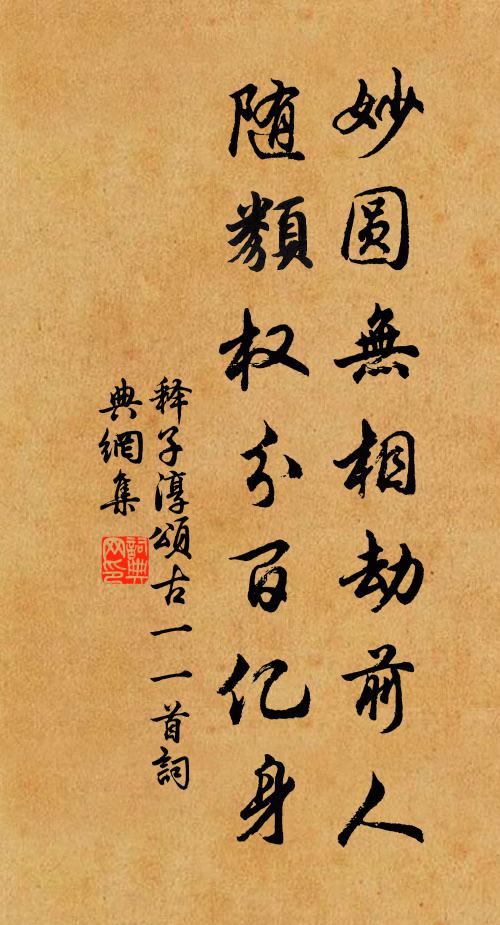 妙圆無相劫前人
随類权分百亿身
释子淳頌古一一首詞
典網集
詞典网印